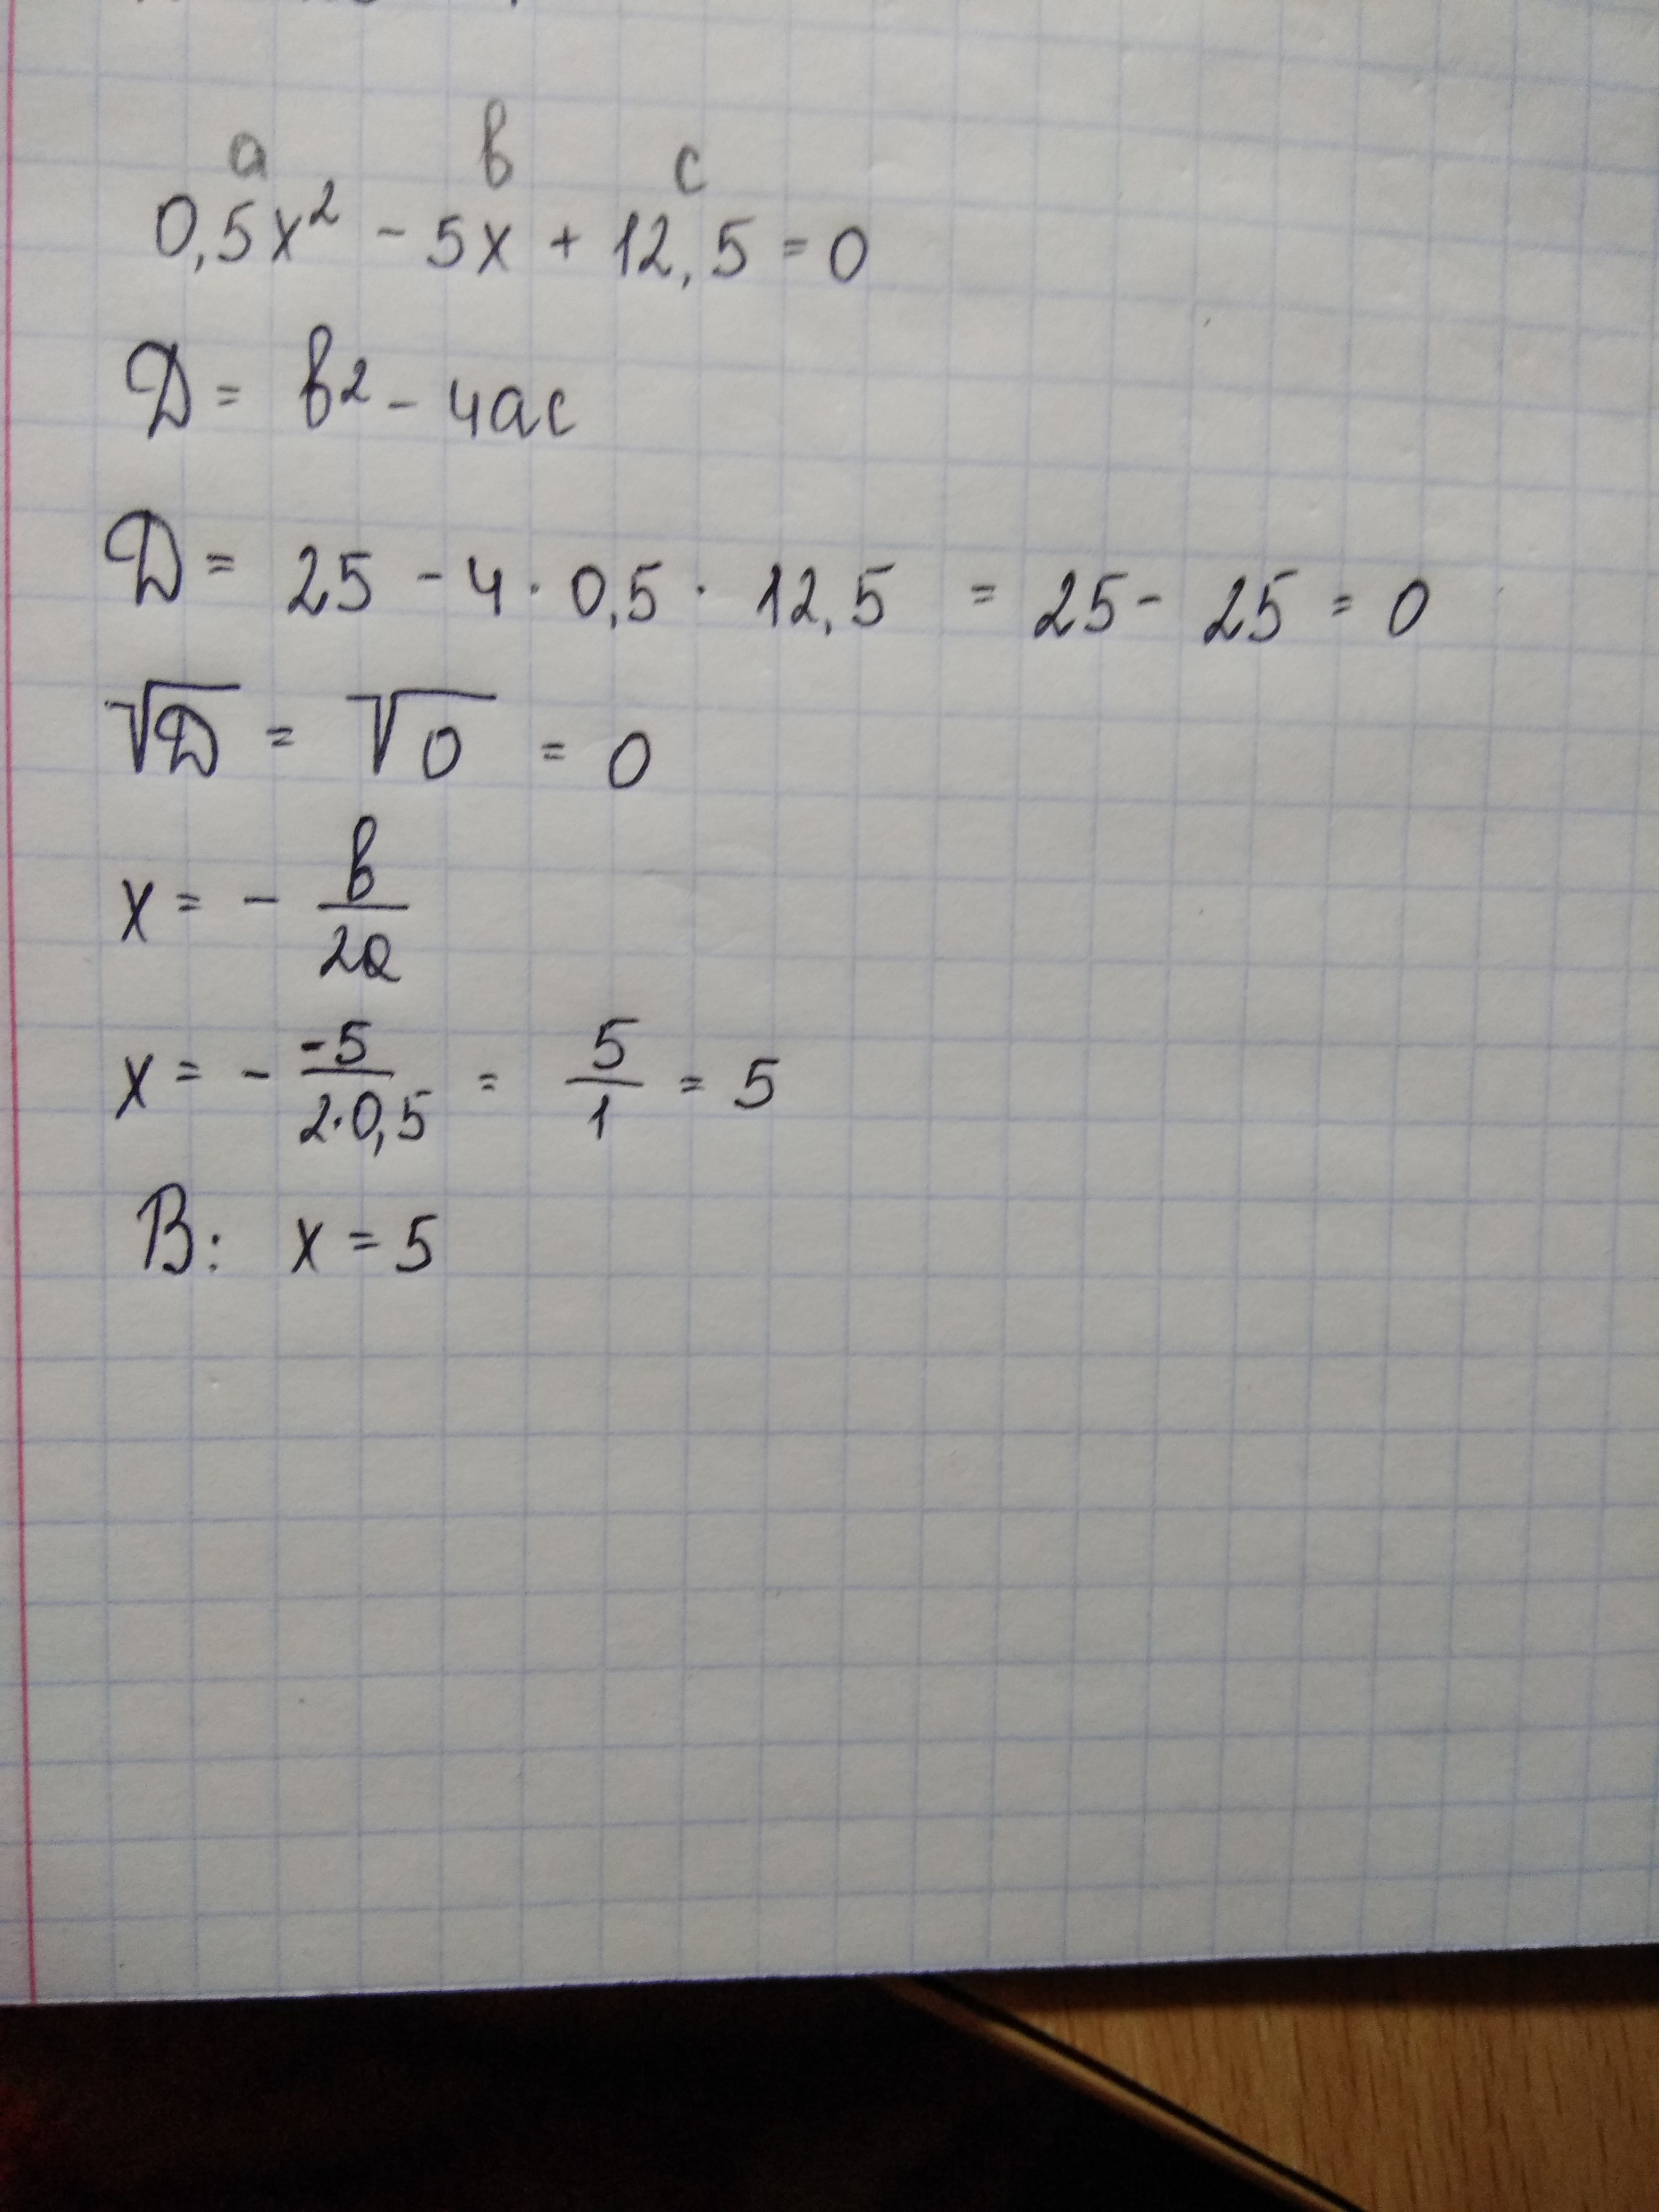 а в с
0,5x² - 5x + 12,5 = 0
Д = в² - 4ac
Д = 25 - 4 · 0,5 · 12,5 = 25 - 25 = 0
√Д = √0 = 0
x = - в/2a
x = - -5/2·0,5 = 5/1 = 5
В: x = 5